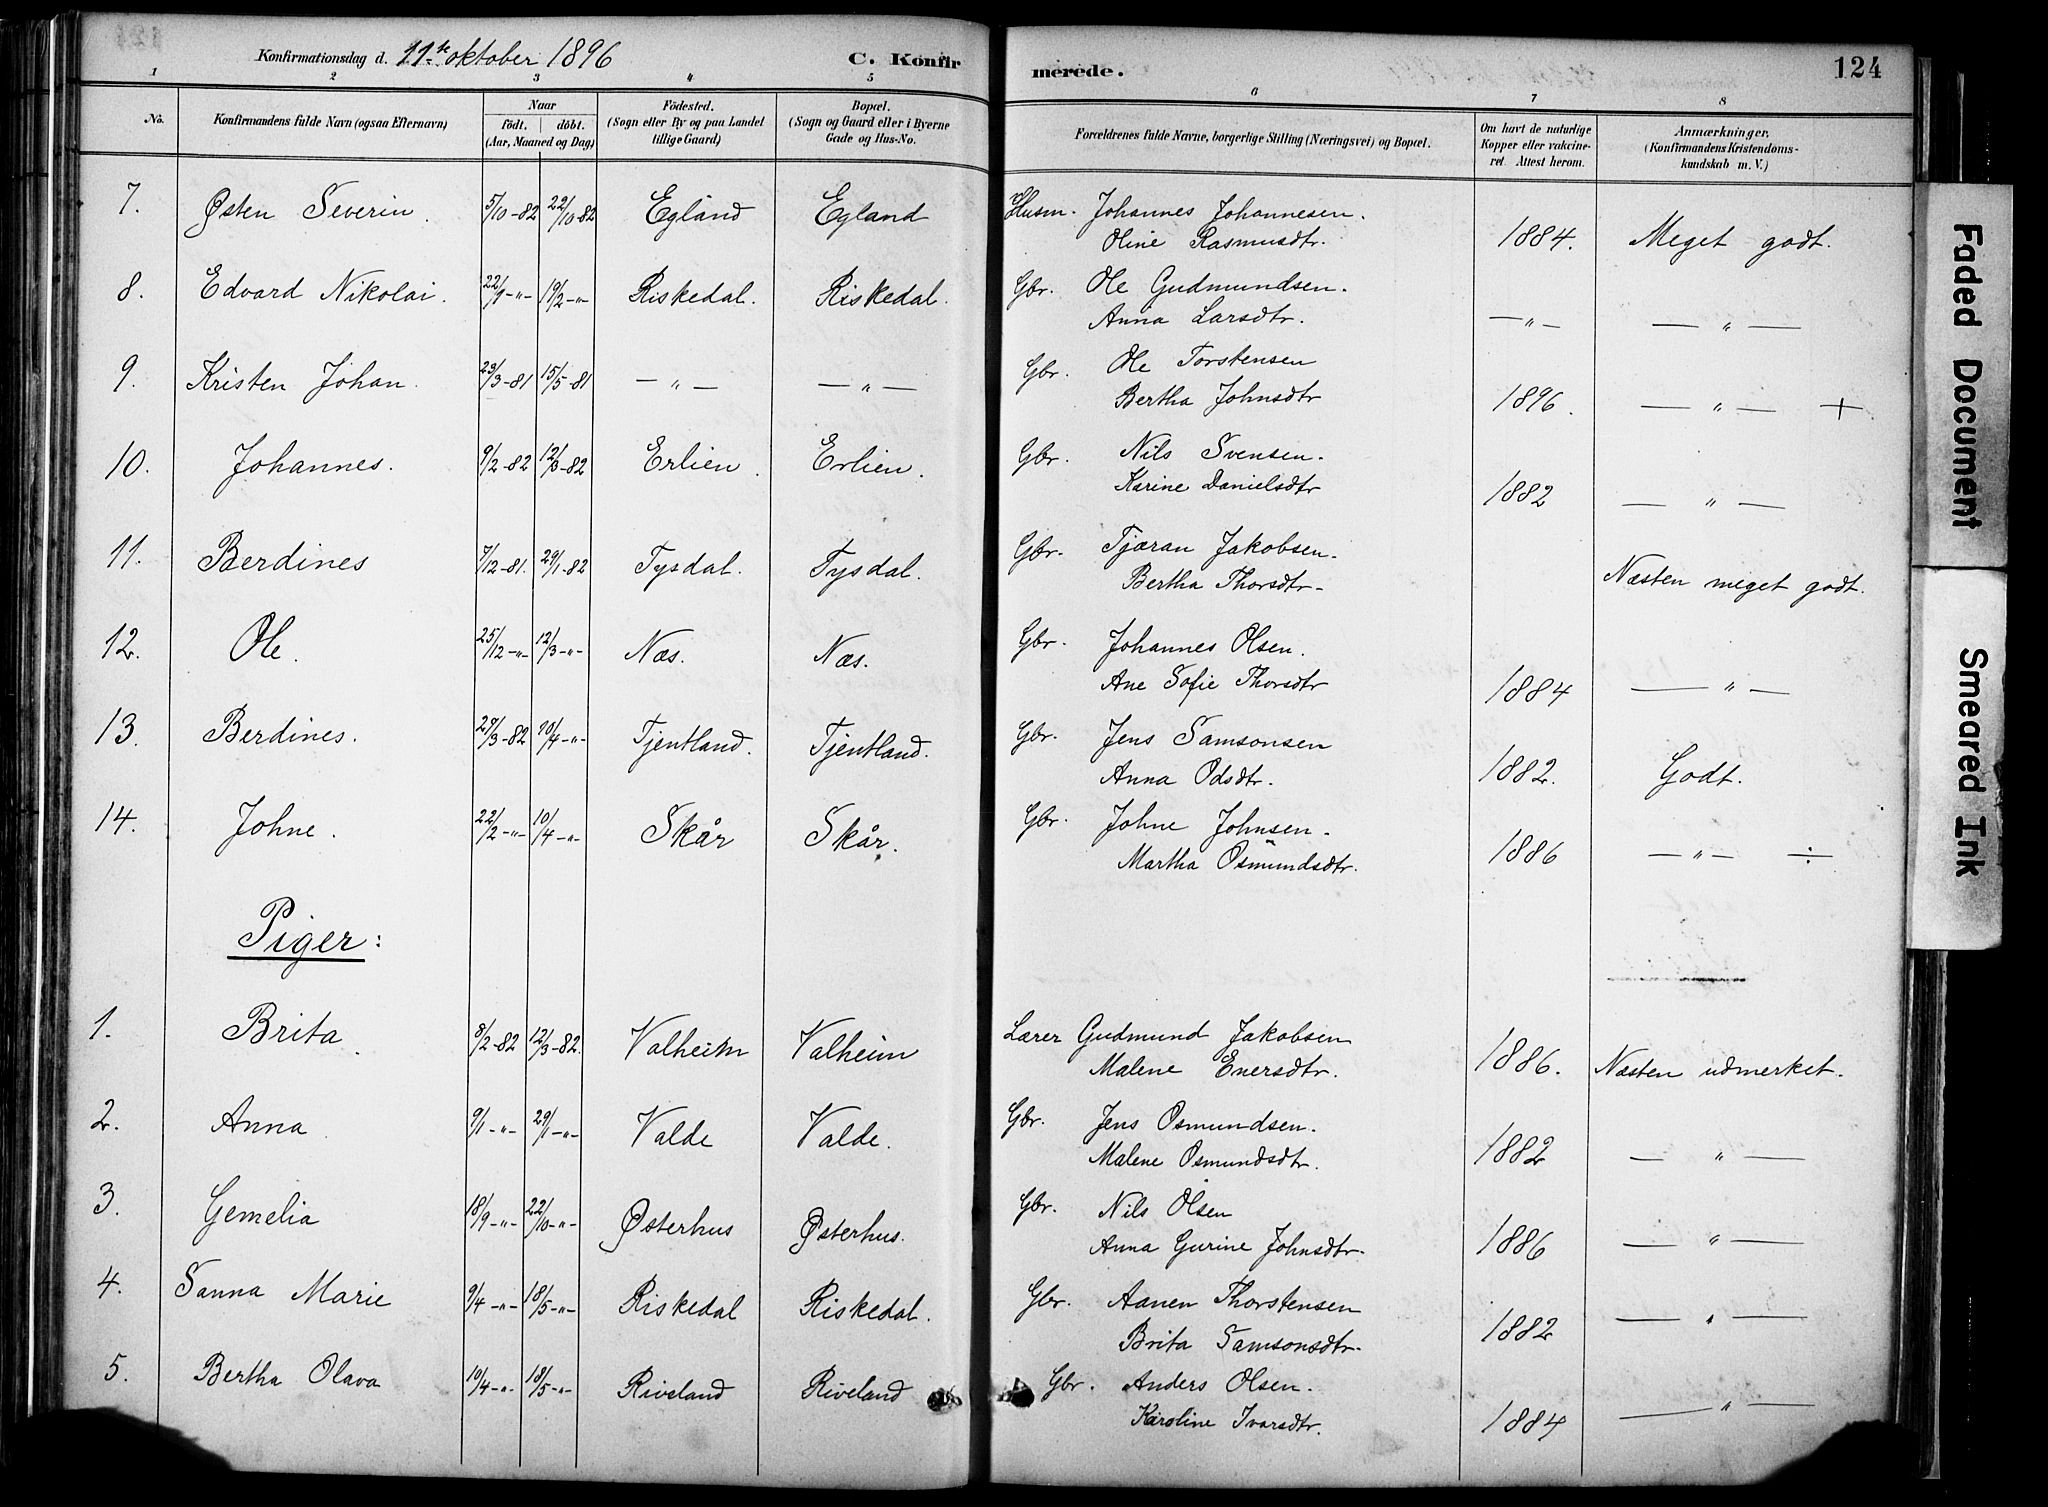 Konfirmationsdag d. 11te oktober 1896 C. Konfirmerede. 124
1 2 3 4 5 6 7 8
No. Konfirmandens fulde Navn (ogsaa Efternavn) Naar født. døbt. (Aar, Maaned og Dag) Födested. (Sogn eller By og paa Landet tillige Gaard) Bopæl. (Sogn og Gaard eller i Byerne Gade og Hus-No. Forældrenes fulde Navne, borgerlige Stilling (Næringsvei) og Bopæl. Om havt de naturlige Kopper eller vakcineret. Attest herom. Anmærkninger. (Konfirmandens Kristendomskundskab m. V.)
7. Østen Severin. 5/10-82 22/10-82 Egland Egland Husm. Johannes Johannesen.
Oline Rasmusdtr. 1884. Meget godt.
8. Edvard Nikolai. 22/9-"- 19/2-"- Riskedal. Riskedal. Gbr. Ole Gudmundsen.
Anna Larsdtr. —"— — " —
9. Kristen Johan. 23/3-81 15/5-81 — " — — " — Gbr. Ole Torstensen
Bertha Johnsdtr 1896. — " — +
10. Johannes. 9/2-82 12/3-82 Erlien. Erlien. Gbr. Nils Svensen.
Karine Danielsdtr 1882 — " —
11. Berdines 7/12-81. 29/1-82 Tysdal. Tysdal. Gbr. Tjæran Jakobsen.
Bertha Thorsdtr. Næsten meget godt.
12. Ole. 25/12-"- 12/3-"- Næs. Næs. Gbr. Johannes Olsen.
Ane Sofie Thorsdtr 1884 — " —
13. Berdines. 27/3-82 10/4-"- Tjentland. Tjentland. Gbr. Jens Samsonsen
Anna Odsdtr. 1882. Godt.
14. Johne. 22/2-"- 10/4-"- Skår Skår. Gbr. Johne Johnsen.
Martha Osmundsdtr. 1886 — " — ÷
Piger:
1. Brita. 8/2-82 12/3-82. Valheim Valheim Lærer Gudmund Jakobsen
Malene Enersdtr. 1886. Næsten udmerket.
2. Anna 9/1-"- 29/1-"- Valde Valde. Gbr. Jens Osmundsen.
Malene Osmundsdtr. 1882 — " —
3. Gemelia 18/9-"- 22/10-"- Østerhus Østerhus. Gbr. Nils Olsen
Anna Gurine Johnsdtr. 1886 — " —
4. Sanna Marie 9/4-"- 18/5-"- Riskedal Riskedal. Gbr. Aanen Thorstensen
Brita Samsonsdtr. 1882 — " —
5. Bertha Olava 10/4-"- 18/5-"- Riveland Riveland Gbr. Anders Olsen.
Karoline Ivarsdtr. 1884 — " —
Faded Document
Smeared Ink